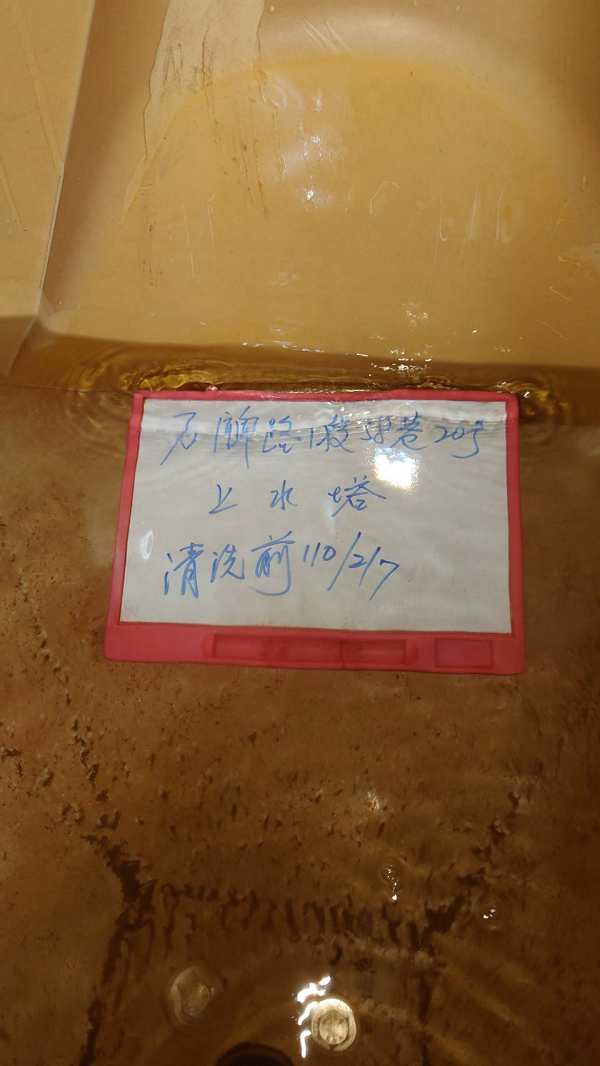 石牌路1段58巷20号
上水塔
清洗前110/2/7